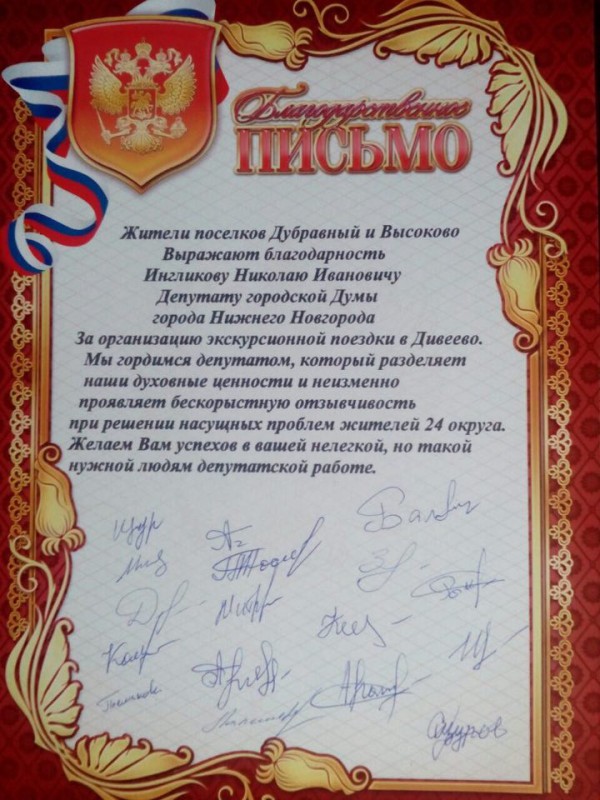 Благодарственное
ПИСЬМО
Жители поселков Дубравный и Высоково
Выражают благодарность
Ингликову Николаю Ивановичу
Депутату городской Думы
города Нижнего Новгорода
За организацию экскурсионной поездки в Дивеево.
Мы гордимся депутатом, который разделяет
наши духовные ценности и неизменно
проявляет бескорыстную отзывчивость
при решении насущных проблем жителей 24 округа.
Желаем Вам успехов в вашей нелегкой, но такой
нужной людям депутатской работе.